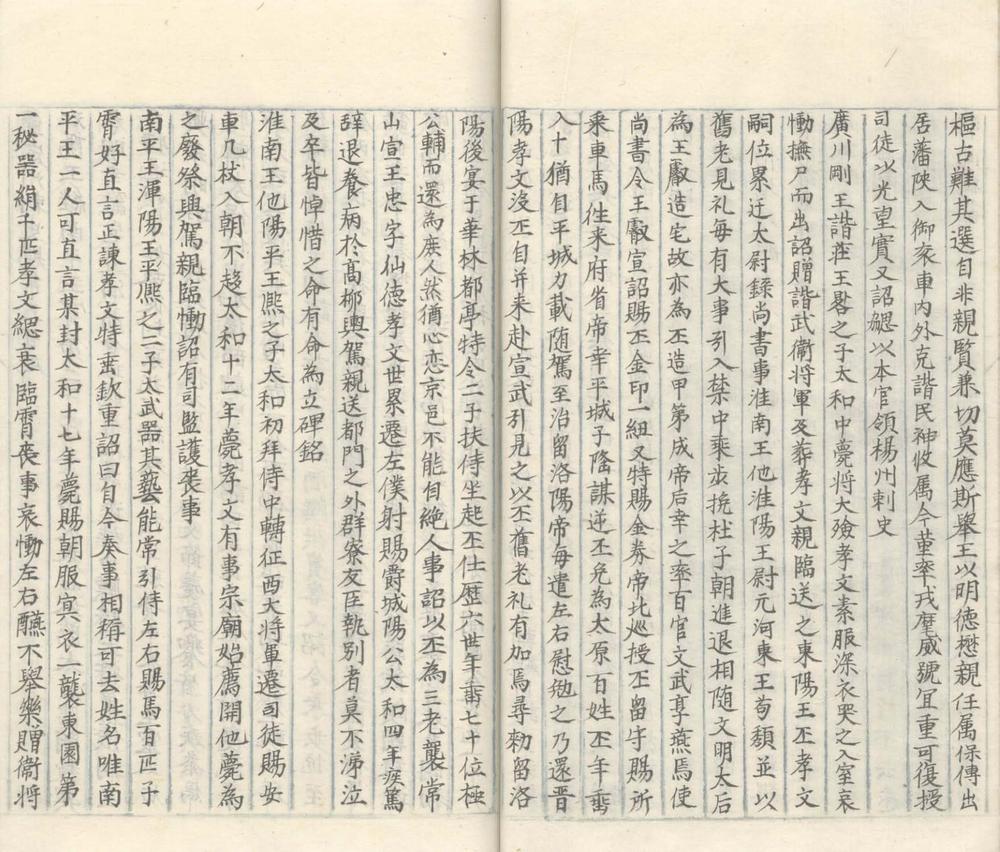 樞古難其選自非親賢兼切莫應斯舉王以明德懋親任属保傅出
居藩陜入御衮車内外克諧民神攸属今董率戎麾威號冝重可復授
司徒以光望實又詔勰以本官領楊州刺史
廣川剛王諧莊王畧之子太和中薨將大殮孝文素服深衣哭之入室哀
慟撫尸而出詔贈諧武衞將軍及葬孝文親臨送之東陽王丕孝文
嗣位累迁太尉錄尚書事淮南王他淮陽王尉元河東王苟頽並以
舊老見礼每有大事引入禁中乘步挽杖于朝進退相随文明太后
為王叡造宅故亦為丕造甲第成帝后幸之率百官文武享燕焉使
尚書令王叡宣詔賜丕金印一紐又特賜金券帝北巡授丕留守賜所
乘車馬往来府省帝幸平城子隆謀逆丕免為太原百姓丕年埀
八十猶自平城力載随駕至治留洛陽帝每遣左右慰勉之乃還晋
陽孝文没丕自并来赴宣武引見之以丕舊老礼有加焉尋勑留洛
陽後宴于華林都亭特令二子扶侍坐起丕仕歷六世年埀七十位極
公輔而還為庻人然猶心恋京邑不能自絶人事詔以丕為三老襲常
山宣王忠字仙德孝文世累遷左僕射賜爵城陽公太和四年疾篤
辞退養病於髙柳輿駕親送都門之外群寮友臣執别者莫不涕泣
及卒皆悼惜之命有命為立碑銘
淮南王他陽平王熈之子太和初拜侍中轉征西大將軍遷司徒賜安
車几杖入朝不趍太和十二年薨孝文有事宗廟始薦開他薨為
之廢祭輿駕親臨慟詔有司監護喪事
南平王渾陽王平熈之二子太武器其藝能常引侍左右賜馬百匹子
霄好直言正諫孝文特埀欽重詔曰自今奏事相稱可去姓名唯南
平王一人可直言某封太和十七年薨賜朝服㝠衣一襲東園第
一秘噐絹千匹孝文緦衰臨霄喪事哀慟左右醼不舉樂贈衞將